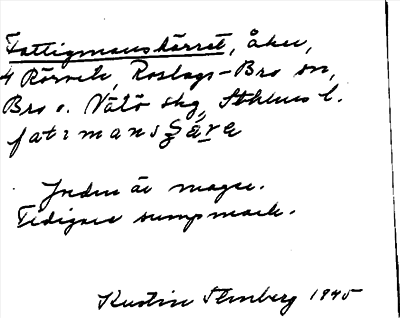 Fattigmanskärret, åker,
4 Rörvik, Roslags-Bro sn,
Bro o. Vätö skg, Sthlms l.
fatimansʂäre
Jorden är mager.
Tidigare sumpmark.
Kerstin Stenberg 1945